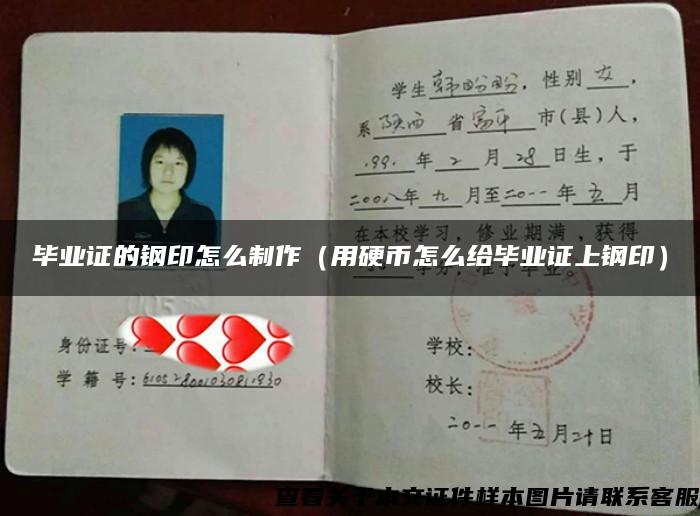 学生韩盼盼，性别女，
系陕西省富平市(县)人，
1991年2月28日生，于
二00八年九月至二0一一年五月
在本校学习，修业期满，获得
学分，准予毕业。
毕业证的钢印怎么制作（用硬币怎么给毕业证上钢印）
身份证号：
学籍号：
学校：
校长：
二0一一年五月二十日
查看关于本文证件样本图片请联系客服